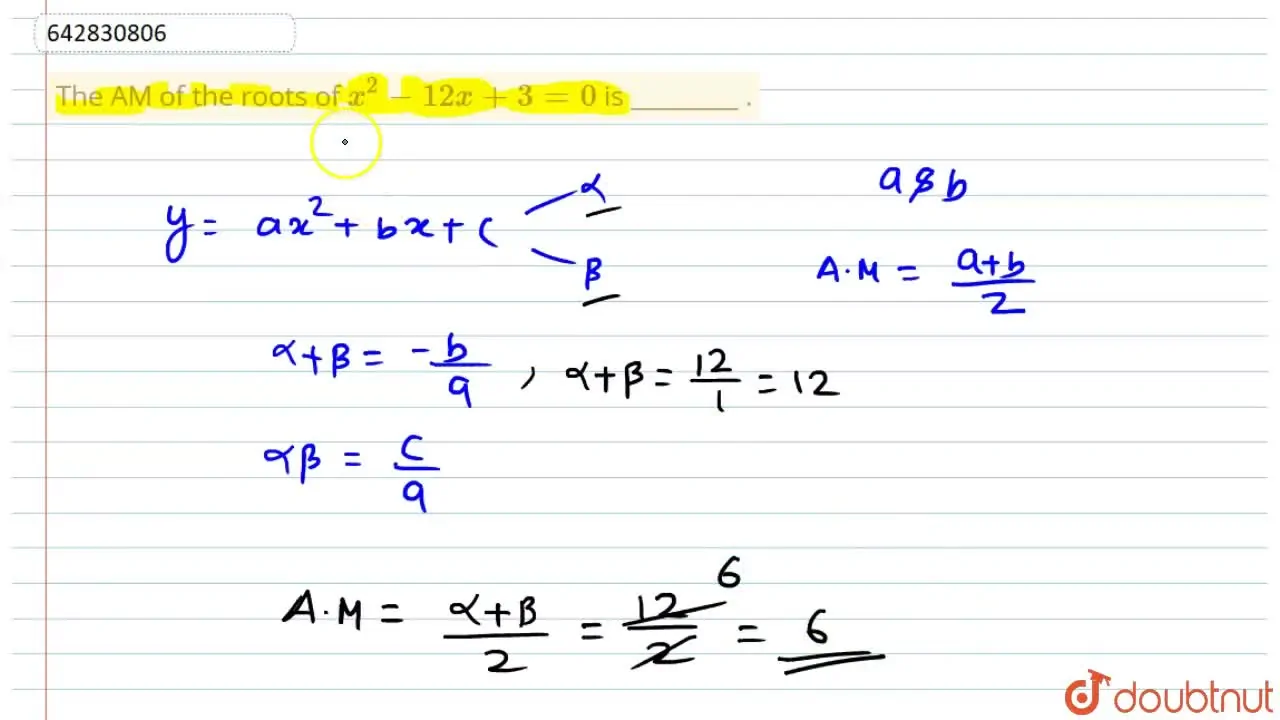 642830806
The AM of the roots of x² − 12x + 3 = 0 is ________ .
y = ax² + bx + c
α
β
a & b
A.M = a+b/2
α+β = -b/a , α+β = 12/1 = 12
αβ = c/a
A.M = α+β/2 = 12/2 = 6
6
doubtnut